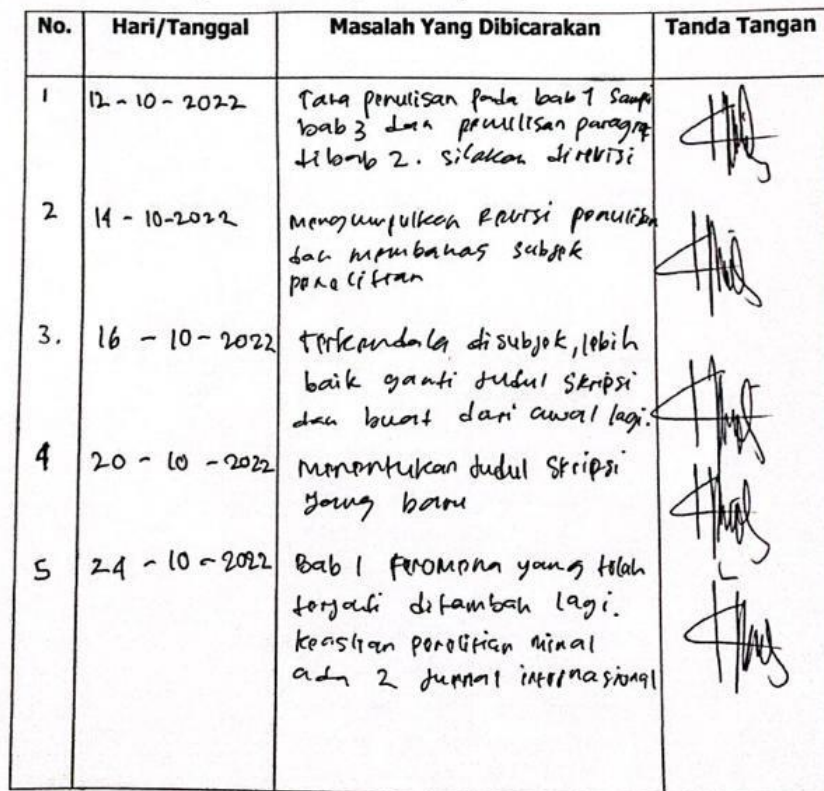 No. Hari/Tanggal Masalah Yang Dibicarakan Tanda Tangan
1 12-10-2022 Tata penulisan pada bab 1 sampai
bab 3 dan penulisan paragraf
dibab 2. silakan direvisi
2 14-10-2022 Mengumpulkan Revisi penulisan
dan membahas subjek
penelitian
3. 16-10-2022 Terkendala disubjek, lebih
baik ganti judul skripsi
dan buat dari awal lagi.
4 20-10-2022 Menentukan judul skripsi
yang baru
5 24-10-2022 Bab 1 fenomena yang telah
terjadi ditambah lagi.
keaslian penelitian minal
ada 2 jurnal internasional